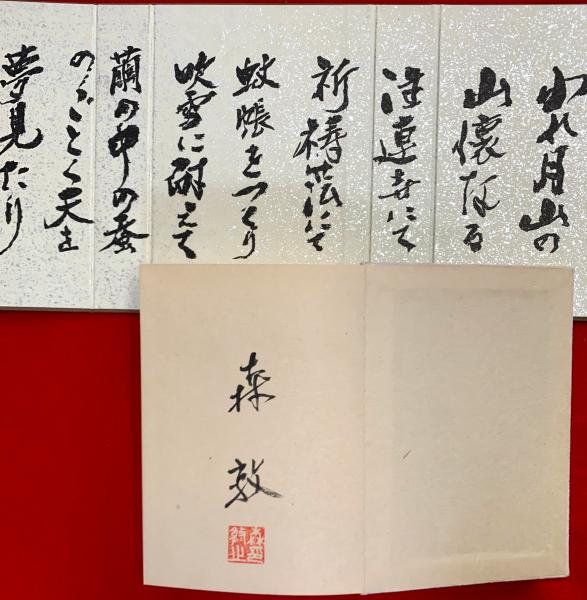 われ月山の
山懐なる
注連寺にて
祈祷簿にて
蚊帳をつくり
吹雪に耐えて
繭の中の蚕
のごとく天を
夢見たり
森敦